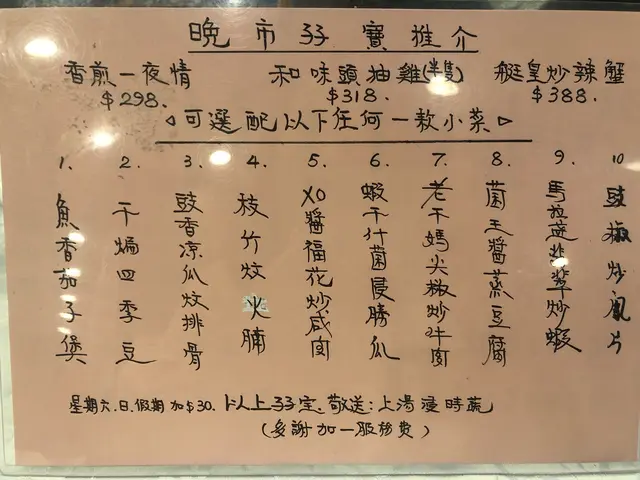 晚市孖寶推介
香煎一夜情 和味頭抽雞(半隻) 艇皇炒辣蟹
$298. $318. $388.
◁可選配以下任何一款小菜▷
1. 魚香茄子煲
2. 干煸四季豆
3. 豉香涼瓜炆排骨
4. 枝竹炆火腩
5. XO醬福花炒咸肉
6. 蝦干什菌浸勝瓜
7. 老干媽尖椒炒牛肉
8. 菌王醬蒸豆腐
9. 馬拉盞炒蝦
10 豉椒炒鳳片
星期六.日.假期加$30. 以上孖宝.敬送:上湯浸時蔬
(多謝加一服務費)